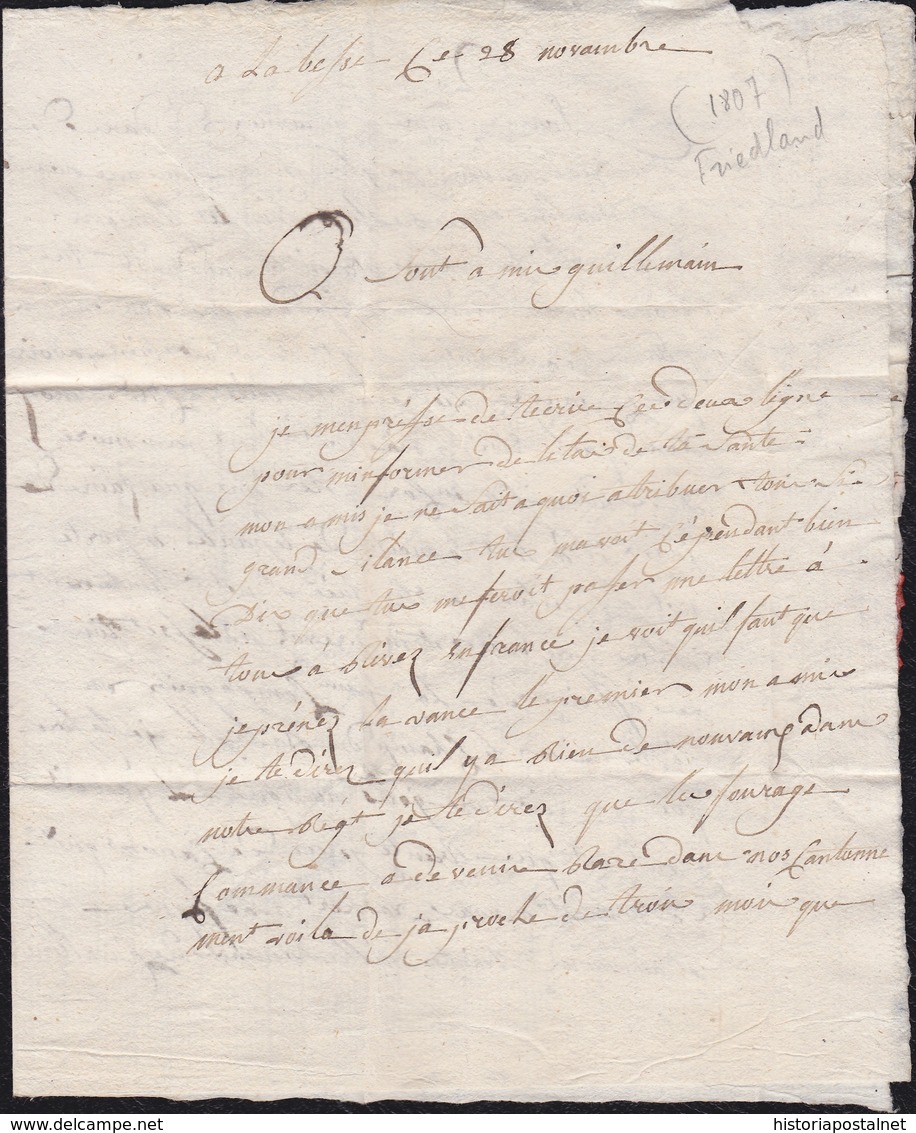 a La besse Ce 28 novambre
(1807)
Friedland
Sont a mis guillemain
je menpresse de tecrire Ces deux ligne
pour minformer de letais de ta Santé
mon amis je ne Sait a quoi atribuer ton Si
grand Silance tu mavoit Cépendant bien
Dit que tu me feroit passer une lettre à
ton à Rivez en france je voit quil faut que
je prénez la vance le premier mon amis
je te direz quil y a Rien de nouvaux dans
notre Régt je te direz que les fourage
Commance a devenire Rare dans nos Cantonne
ment voila de ja proche de trois mois que
historiapostalnet